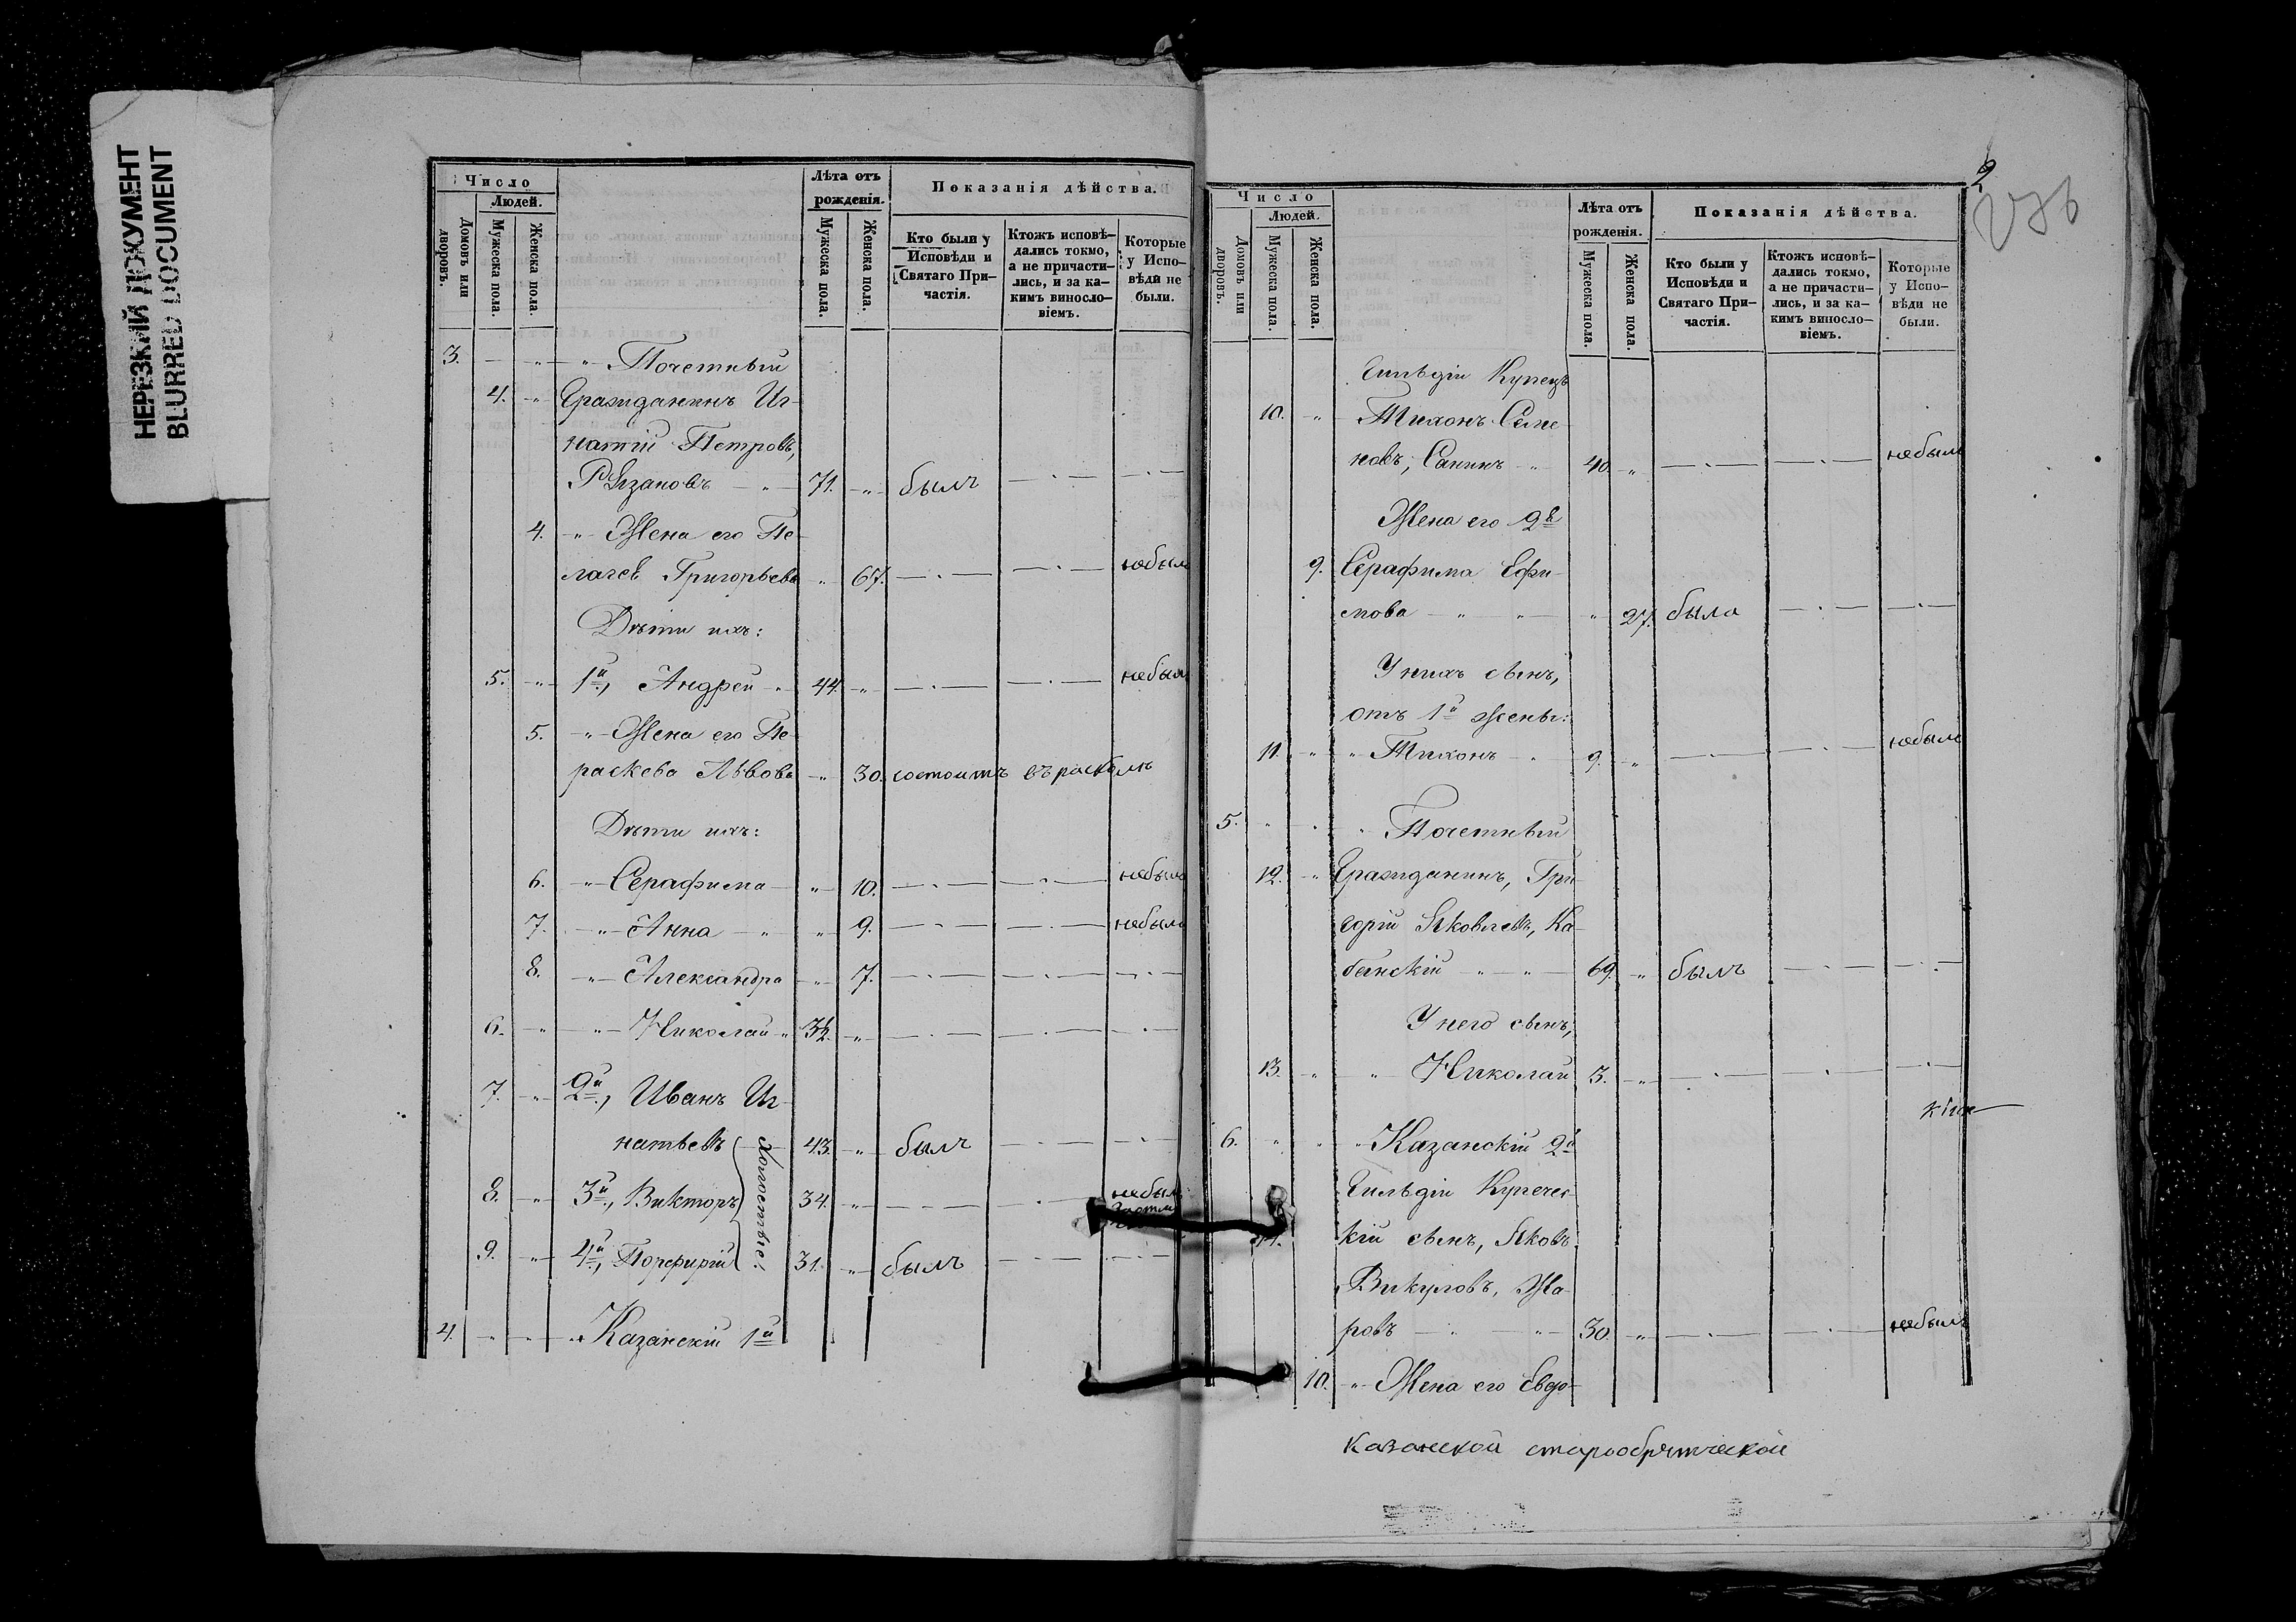 НЕРЕЗКИЙ ДОКУМЕНТ
BLURRED DOCUMENT
Число
Людей.
Домовъ или дворовъ.
Мужеска пола.
Женска пола.
Лѣта отъ рожденія.
Мужеска пола.
Женска пола.
Показанія дѣйства.
Кто были у Исповѣди и Святаго Причастія.
Ктожъ исповѣдались токмо, а не причастились, и за какимъ винословіемъ.
Которые у Исповѣди не были.
3. — " — " — Почетный
4. " Гражданинъ Иг-
натій Петровъ,
Рѣзановъ — " — 71. " былъ
4. " Жена его Пе-
лагея Григорьева " 67. небыла
Дѣти ихъ:
5. " 1й, Андрей " 44. " небылъ
5. " Жена его Па-
раскева Львова " 30. состоитъ въ расколѣ
Дѣти ихъ:
6. " Серафима " 10. небыла
7. " Анна " 9. небыла
8. " Александра " 7.
6. " " Николай " 3½. "
7. " 2й, Иванъ Иг-
натьевъ 43. " былъ
Холостые:
8. " 3й, Викторъ 34. " небылъ
9. " 4й, Порфирій 31. " былъ
4. " " " Казанскій 1й
2
Число
Людей.
Домовъ или дворовъ.
Мужеска пола.
Женска пола.
Лѣта отъ рожденія.
Мужеска пола.
Женска пола.
Показанія дѣйства.
Кто были у Исповѣди и Святаго Причастія.
Ктожъ исповѣдались токмо, а не причастились, и за какимъ винословіемъ.
Которые у Исповѣди не были.
Гильдіи Купецъ
10. " Тихонъ Семе-
новъ, Санинъ " 40. " небылъ
Жена его 2я
9. Серафима Ефи-
мова " " " 27. была
У нихъ сынъ,
отъ 1й жены:
11. " " Тихонъ " 9. " небылъ
5. " " " Почетный
12. " Гражданинъ, Гри-
горій Яковлевъ, Ка-
банскій " " 69. " былъ
У него сынъ,
13. " " Николай 3. "
6. " " " Казанскій 2й
Гильдіи Купечес-
кій сынъ, Яковъ
Викуловъ, Жа-
ровъ " " 30. " небылъ
10. " Жена его Евдо-
казанской старообрятческой